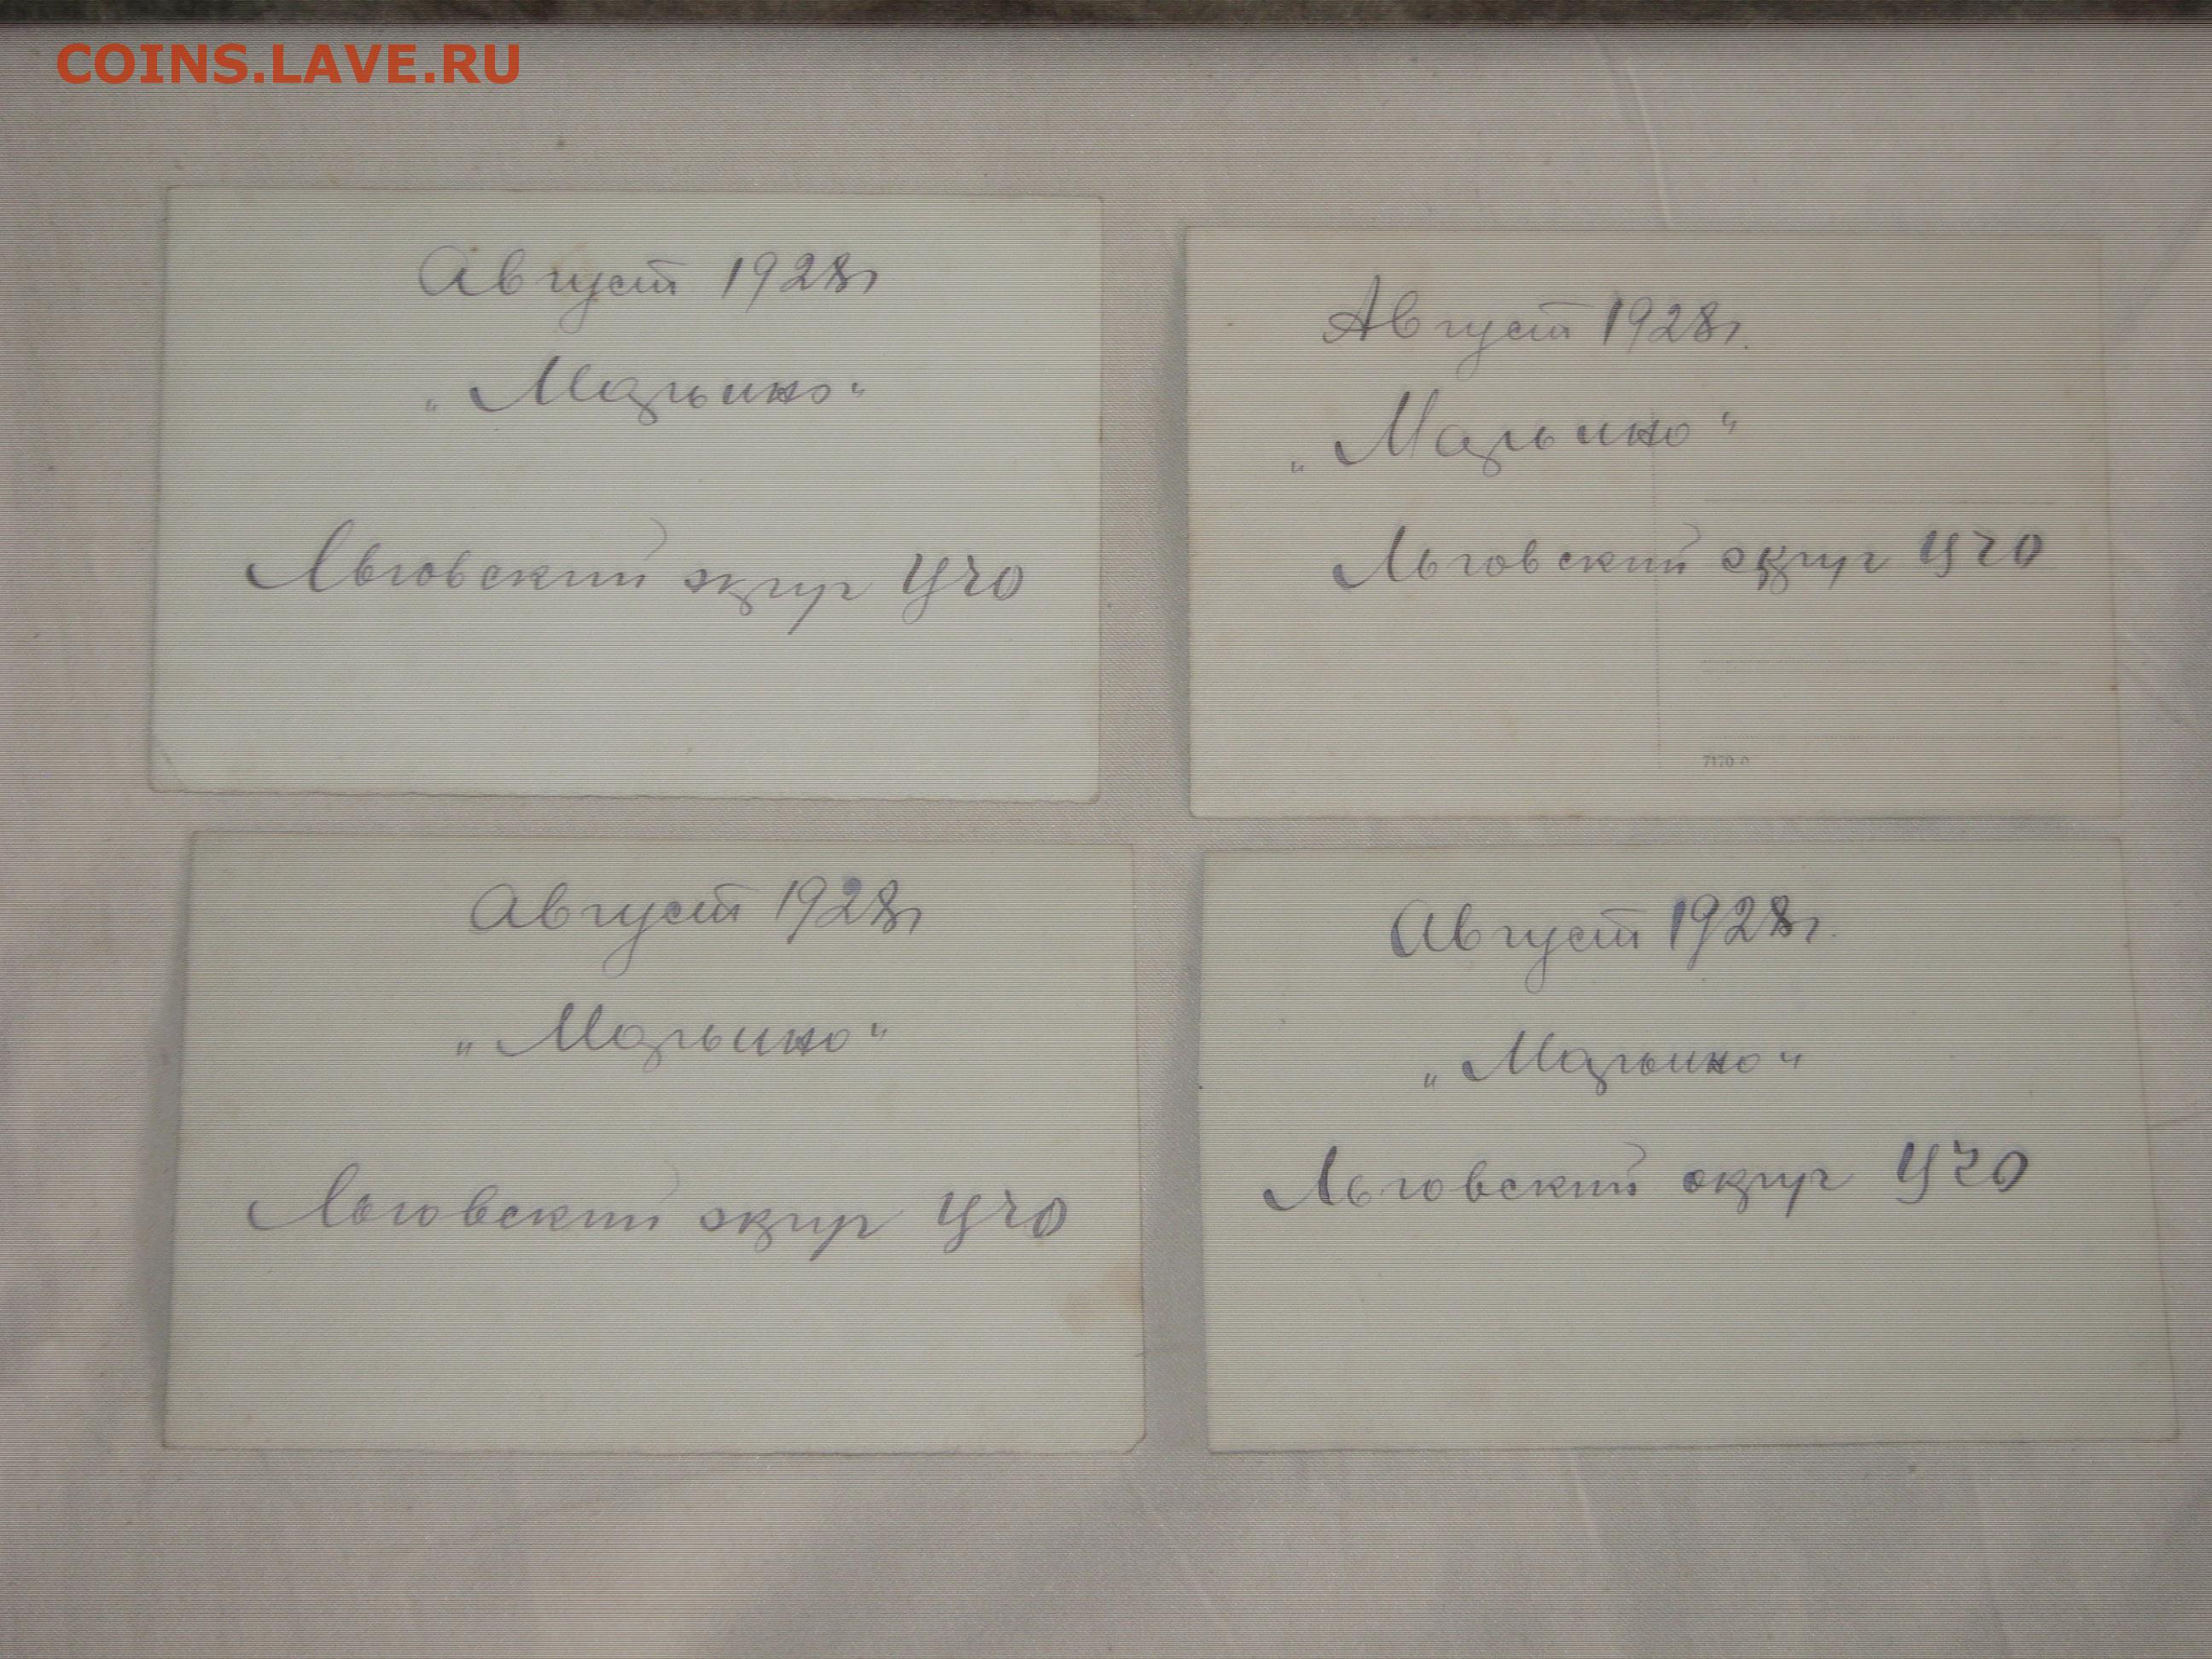 COINS.LAVE.RU
Август 1928г
„Марьино"
Льговский округ ЦЧО
Август 1928г.
„Марьино"
Льговский округ ЦЧО
Август 1928г
„Марьино"
Льговский округ ЦЧО
Август 1928г.
„Марьино"
Льговский округ ЦЧО